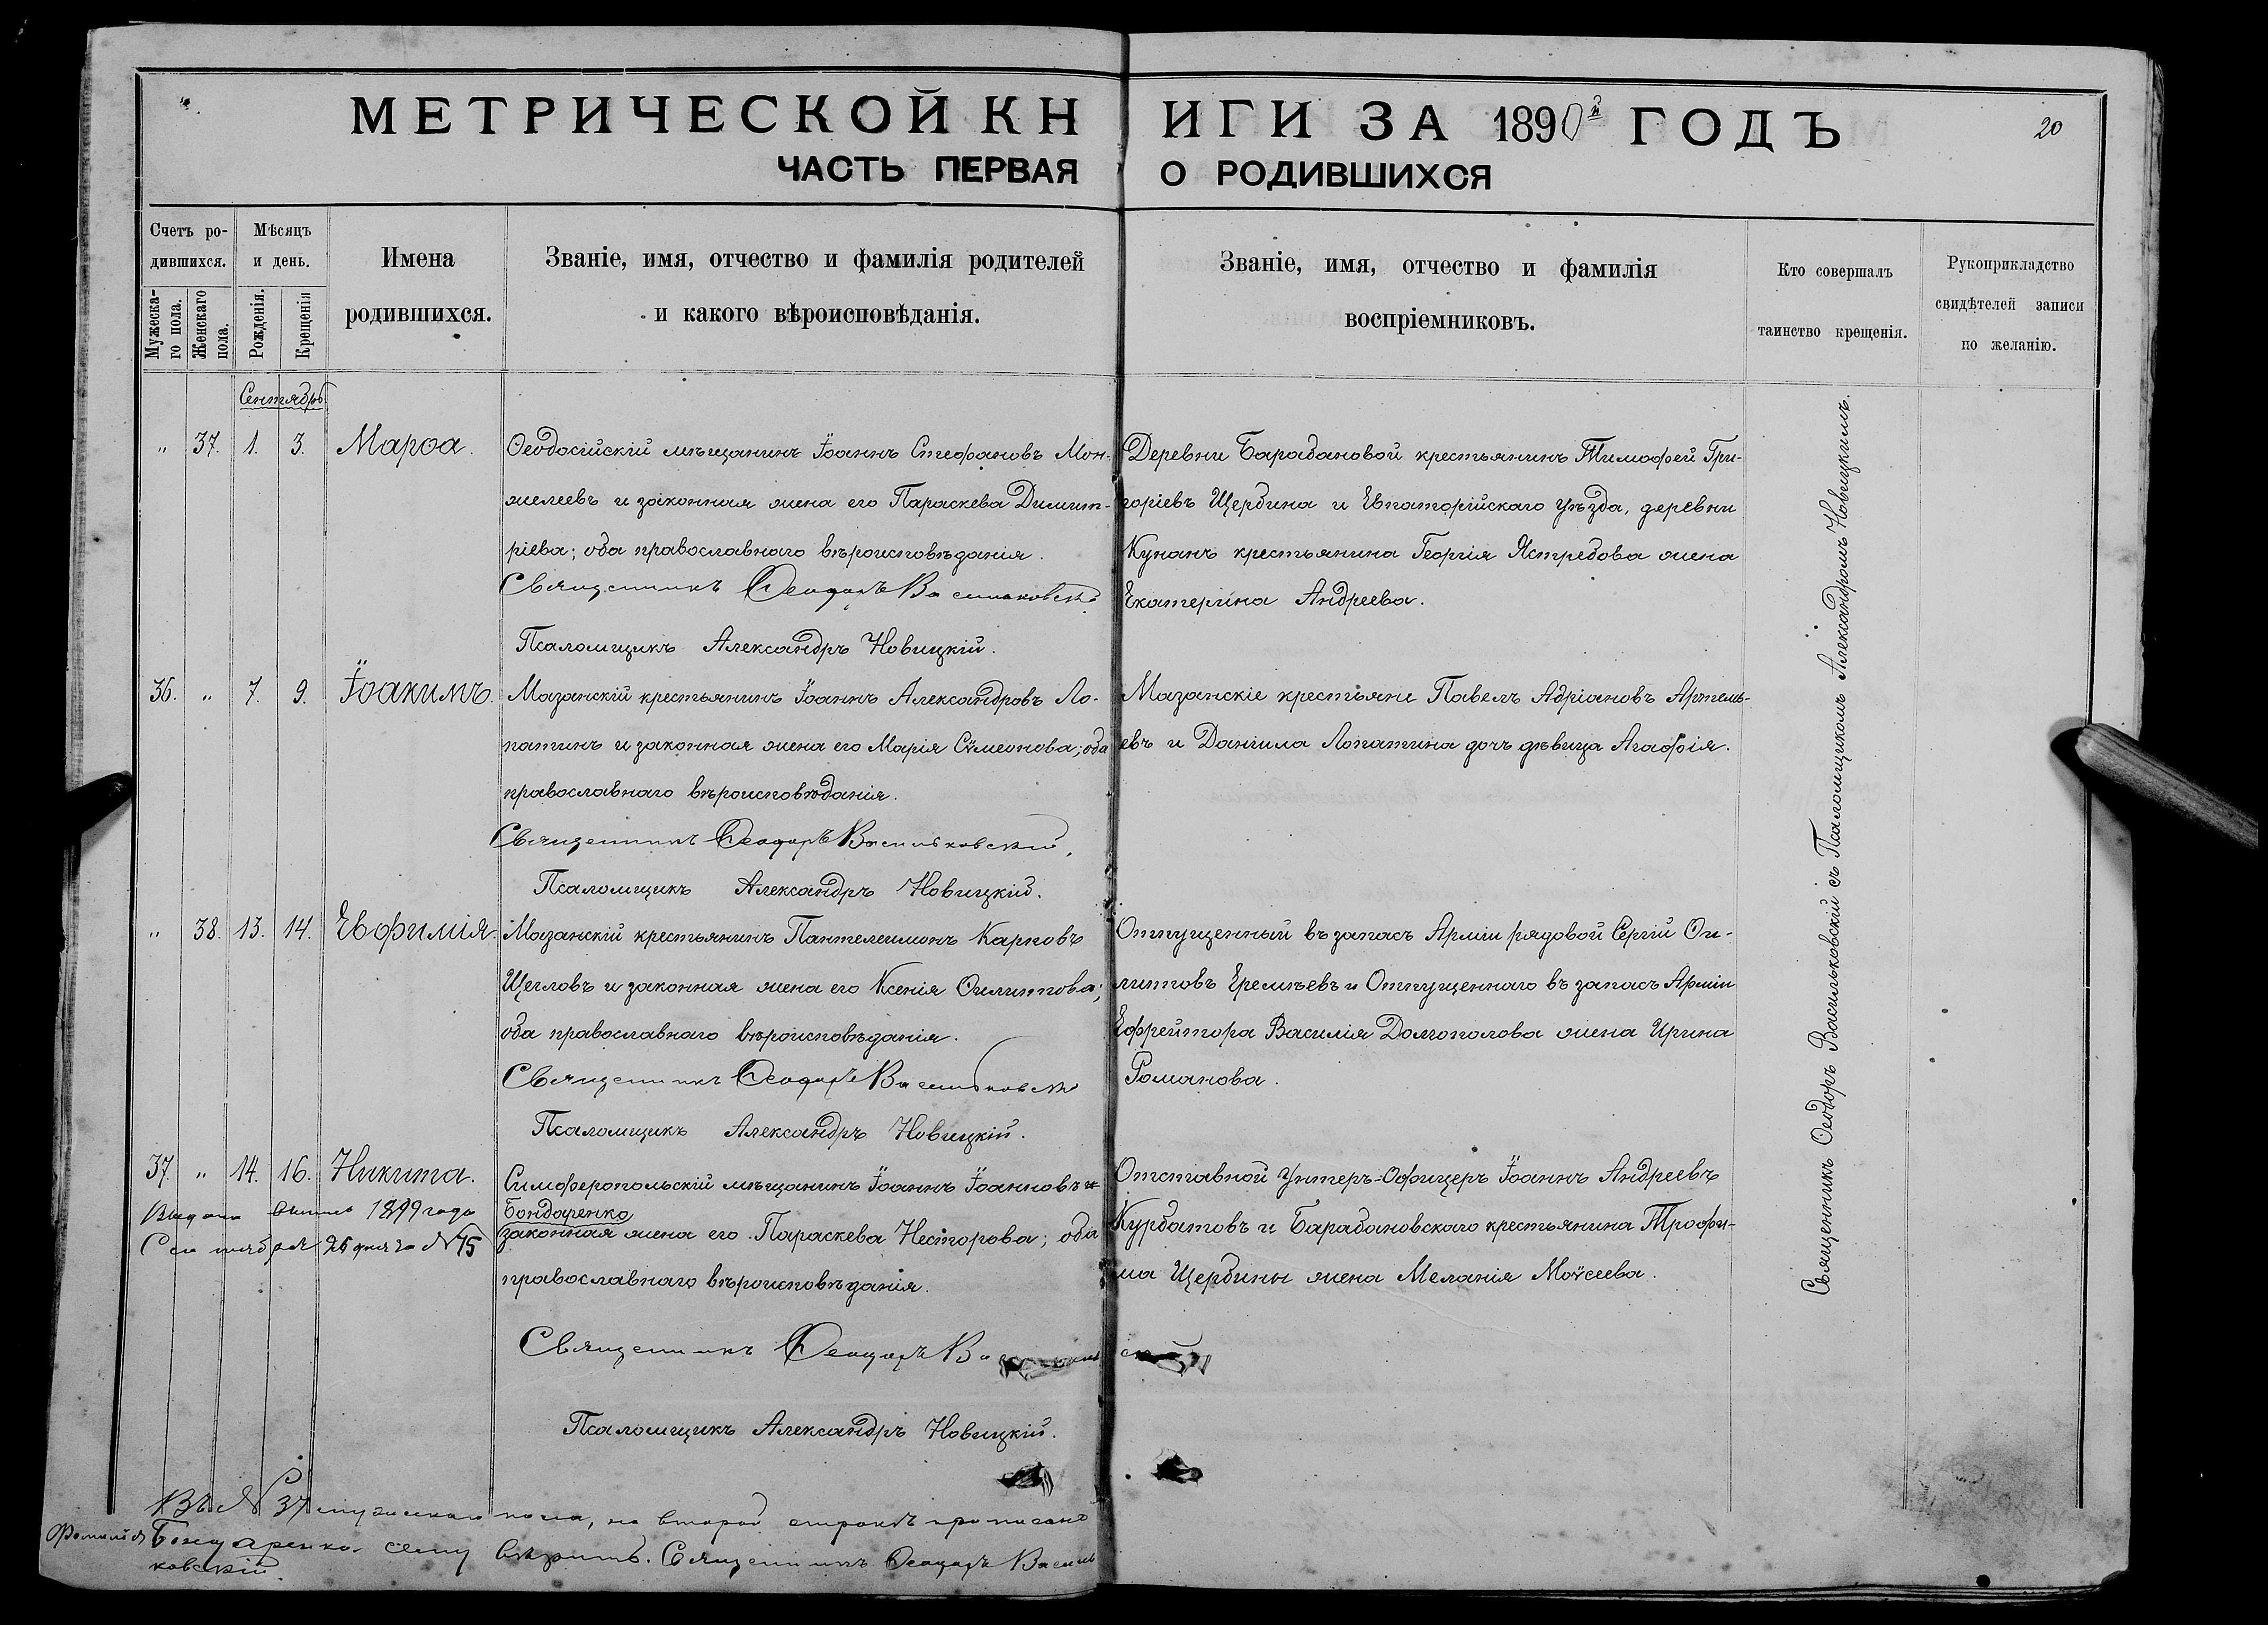 МЕТРИЧЕСКОЙ КНИГИ ЗА 1890й ГОДЪ
20
ЧАСТЬ ПЕРВАЯ О РОДИВШИХСЯ
Счетъ ро-
дившихся.
Мужеска-
го пола.
Женскаго
пола.
Мѣсяцъ
и день.
Рожденія.
Крещенія
Имена
родившихся.
Званіе, имя, отчество и фамилія родителей
и какого вѣроисповѣданія.
Званіе, имя, отчество и фамилія
воспріемниковъ.
Кто совершалъ
таинство крещенія.
Рукоприкладство
свидѣтелей записи
по желанію.
Сентябрь
" 37. 1. 3. Марѳа.
Ѳеодосійскій мѣщанинъ Іоаннъ Стефановъ Мон-
желеевъ и законная жена его Параскева Димит-
ріева; оба православнаго вѣроисповѣданія.
Священникъ Ѳеодоръ Васильковскій
Псаломщикъ Александръ Новицкій.
Деревни Барабановой крестьянинъ Тимофей Гри-
горіевъ Щербина и Евпаторійскаго уѣзда, деревни
Кунанъ крестьянина Георгія Ястребова жена
Екатерина Андреева.
36. " 7. 9. Іоакимъ.
Мазанскій крестьянинъ Іоаннъ Александровъ Ло-
патинъ и законная жена его Марія Сѵмеонова; оба
православнаго вѣроисповѣданія.
Священникъ Ѳеодоръ Васильковскій.
Псаломщикъ Александръ Новицкій.
Мазанскіе крестьяне Павелъ Адріановъ Артемь-
евъ и Даніила Лопатина дочь дѣвица Агафія.
" 38. 13. 14. Евфимія.
Мазанскій крестьянинъ Пантелеимонъ Карповъ
Щегловъ и законная жена его Ксенія Филиппова;
оба православнаго вѣроисповѣданія.
Священникъ Ѳеодоръ Васильковскій
Псаломщикъ Александръ Новицкій.
Отпущенный въ запасъ Арміи рядовой Сергій Фи-
липповъ Еремѣевъ и Отпущеннаго въ запасъ Арміи
Ефрейтора Василія Долгополова жена Ирина
Романова.
37. " 14. 16. Никита.
Выдана выпись 1899 года
Сентября 25 дня за №75
Симферопольскій мѣщанинъ Іоаннъ Іоанновъ и
Бондаренко
законная жена его Параскева Несторова; оба
православнаго вѣроисповѣданія.
Священникъ Ѳеодоръ Васильковскій
Псаломщикъ Александръ Новицкій.
Отставной Унтеръ-Офицеръ Іоаннъ Андреевъ
Курбатовъ и Барабановскаго крестьянина Трофи-
ма Щербины жена Меланія Моѵсеева.
Священникъ Ѳеодоръ Васильковскій съ Псаломщикомъ Александромъ Новицкимъ.
Въ № 37 мужескаго пола, на второй строкѣ прописано
Фамилія Бондаренко сему вѣрить. Священникъ Ѳеодоръ Василь
ковскій.